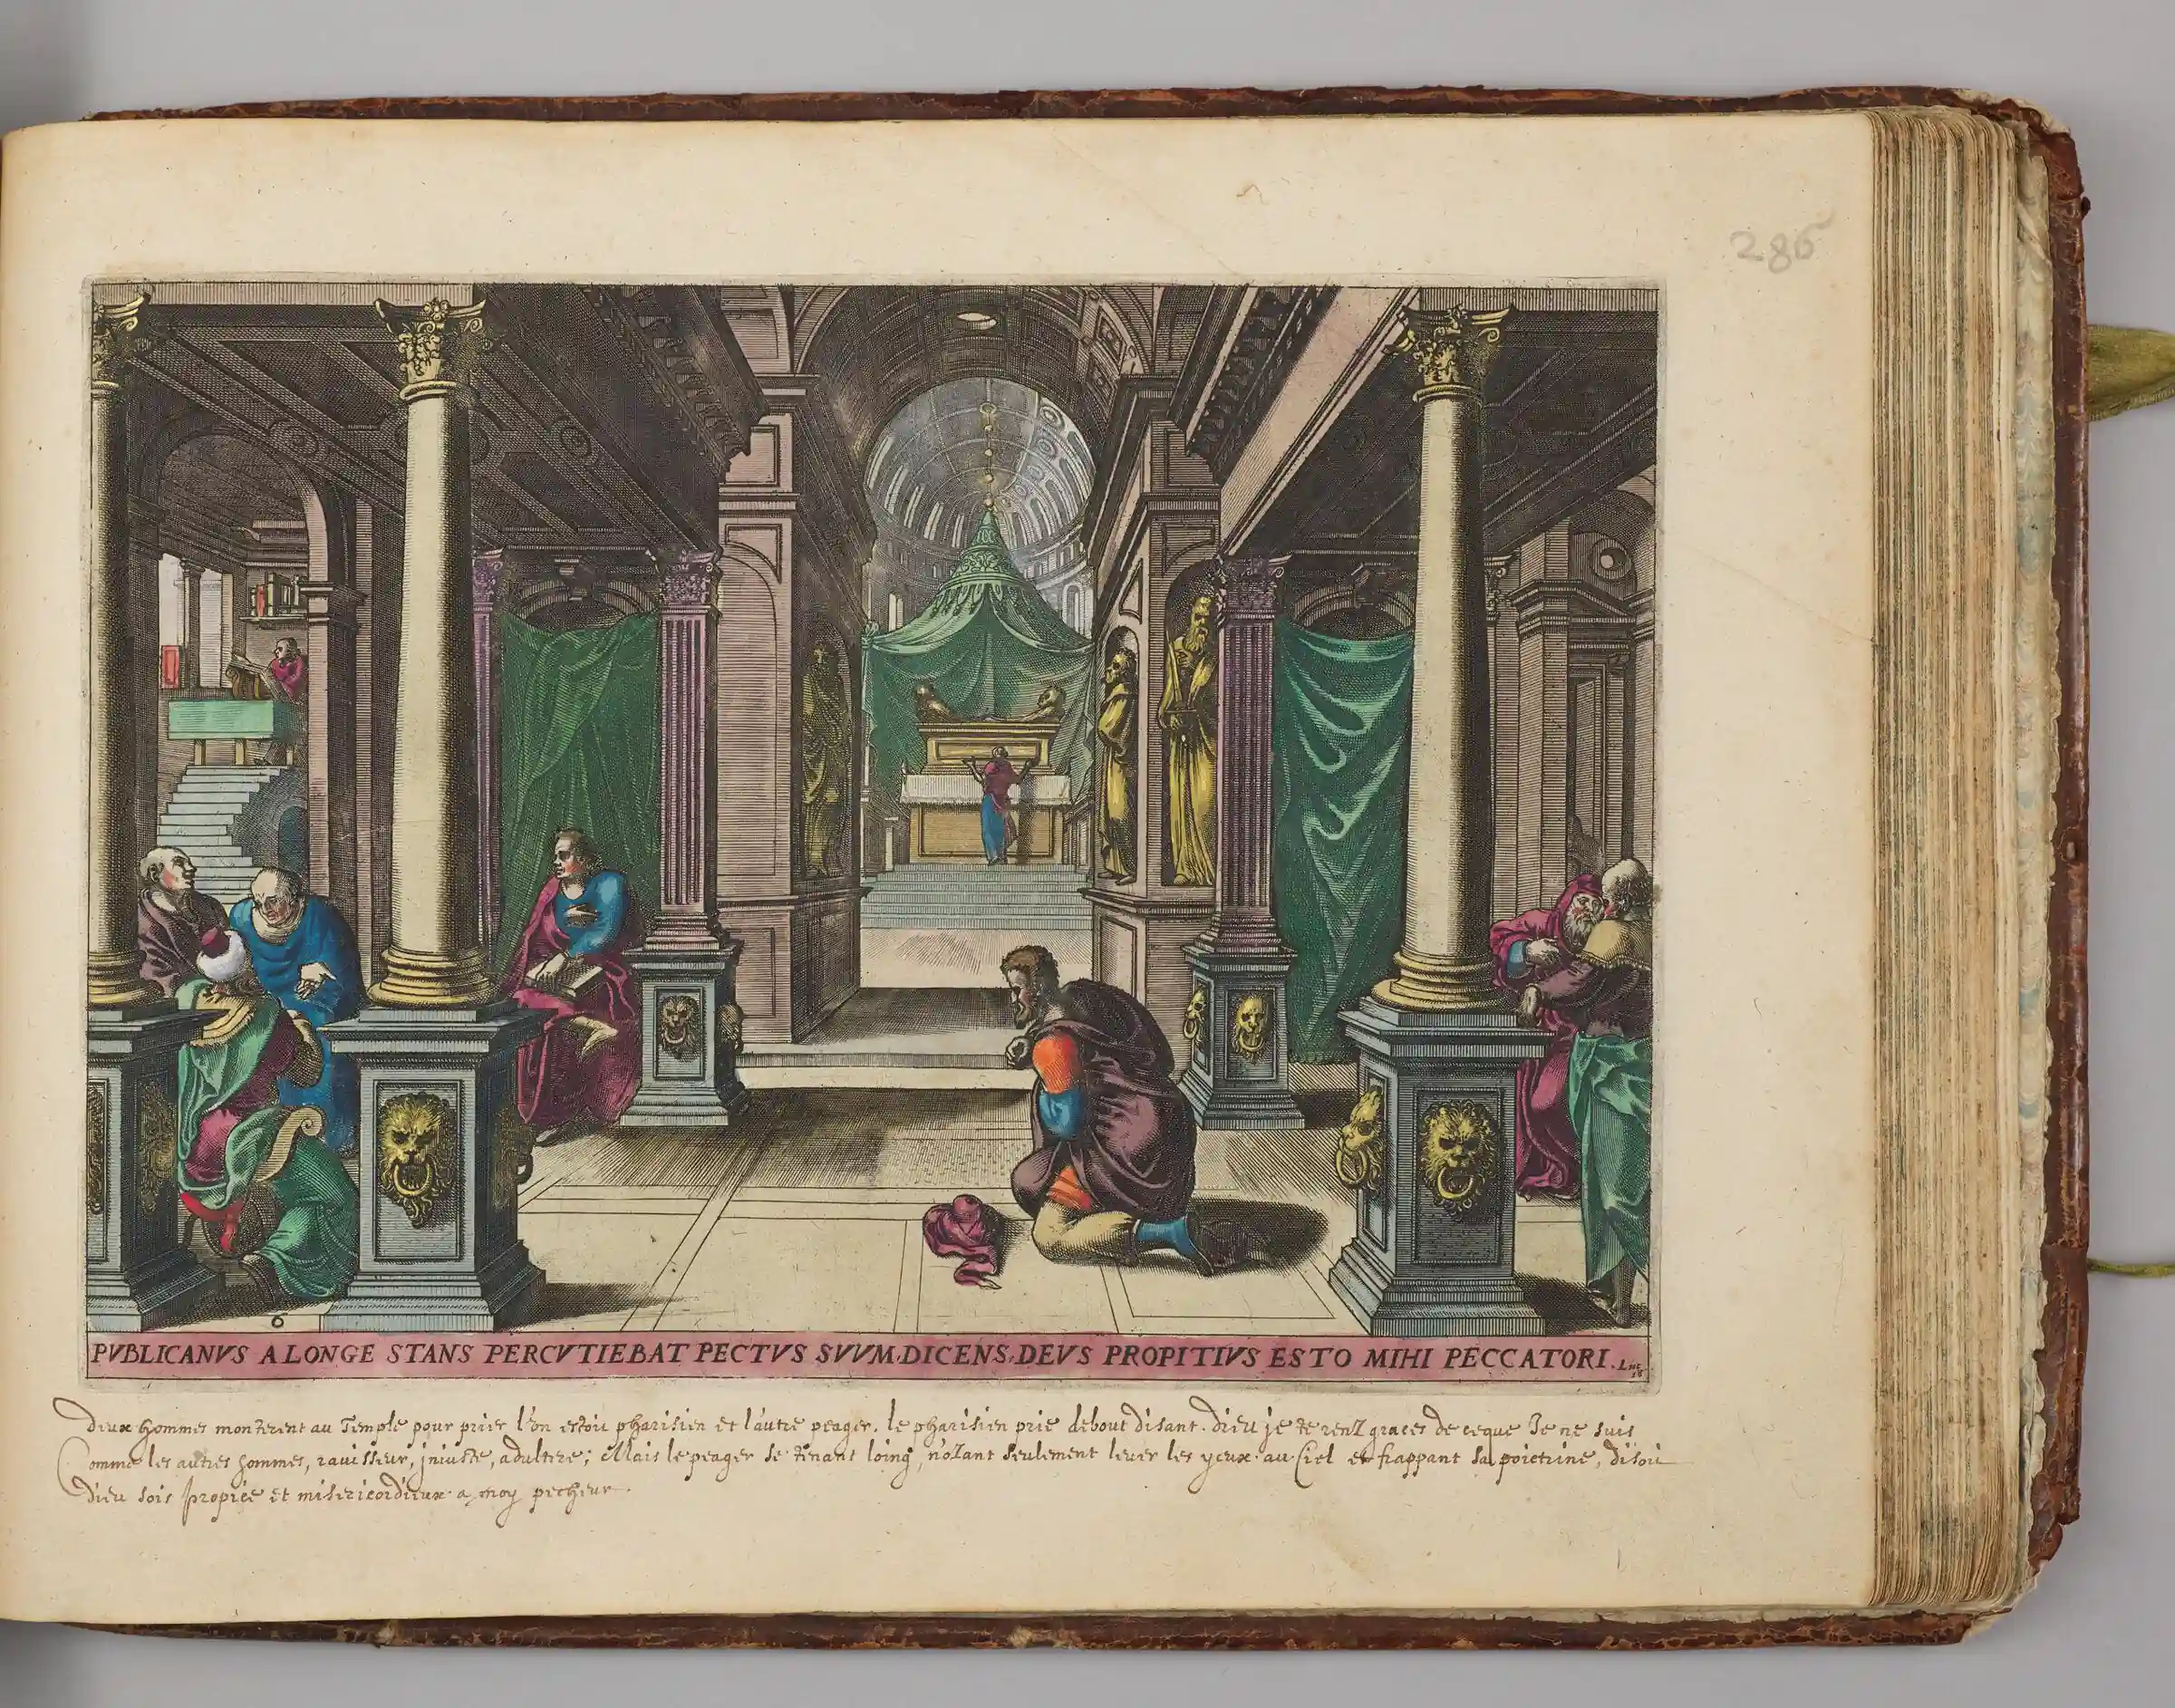 286
6
PVBLICANVS A LONGE STANS PERCVTIEBAT PECTVS SVVM. DICENS, DEVS PROPITIVS ESTO MIHI PECCATORI. Luc. 18
Deux hommes monterent au Temple pour prier l'on estoit pharisien et l'autre peager. le pharisien prie debout disant. Dieu je te renz graces de ceque Je ne suis
Comme les autres hommes, rauisseur, jniuste, adultere; Mais le peager se tenant loing, n'oZant seulement leuer les yeux au Ciel et frappant sa poictrine, disoit
dieu sois propice et misericordieux a moy pecheur.